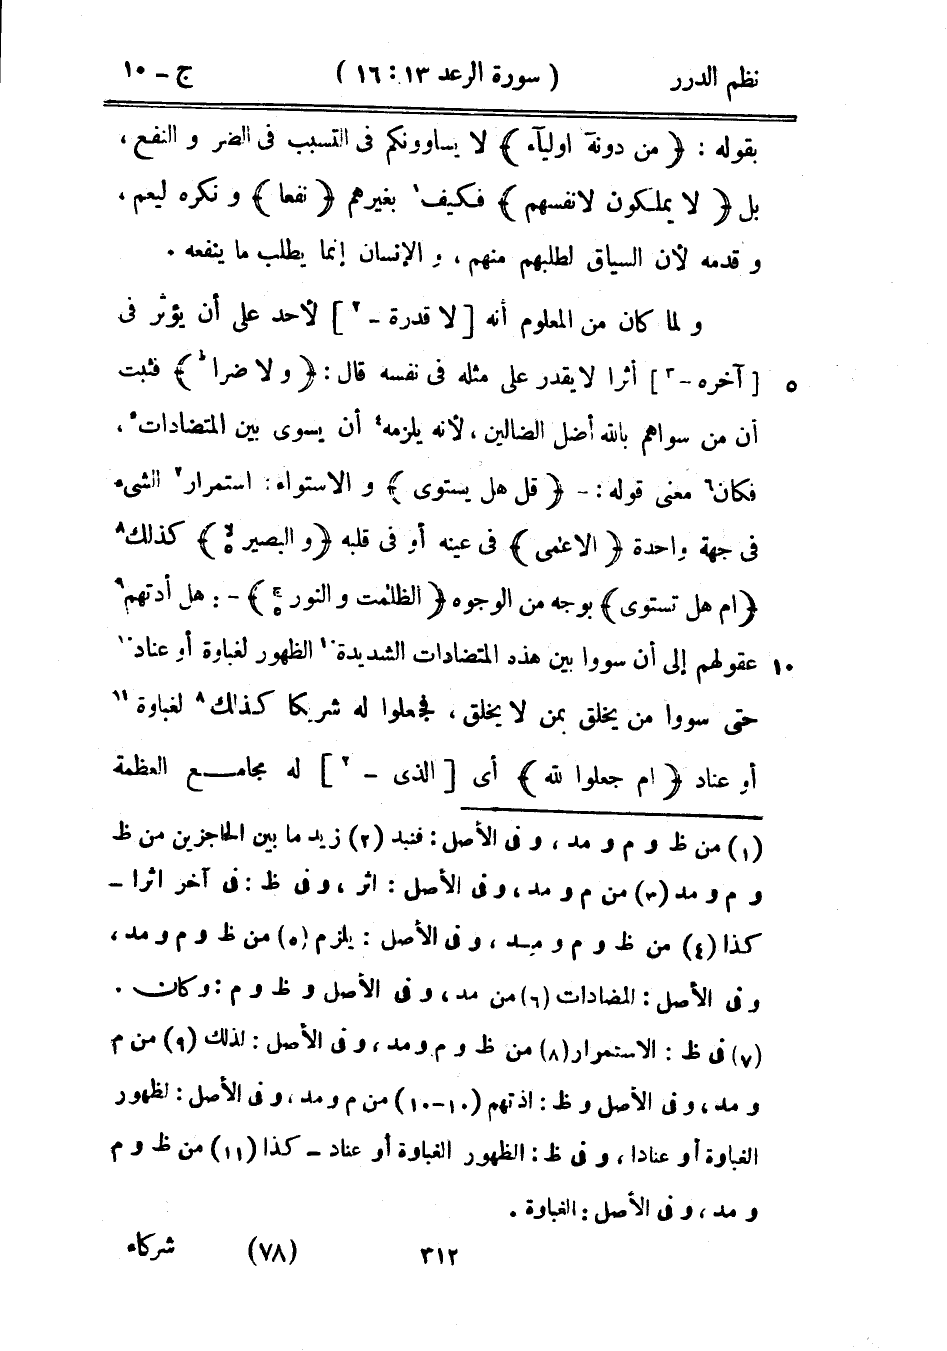 نظم الدرر ( سورة الرعد ١٣ : ١٦ ) ج - ١٠
بقوله : ﴿ من دونهٓ اوليآء ﴾ لا يساوونكم فى التسبب فى الضر و النفع ،
بل ﴿ لا يملكون لانفسهم ﴾ فكيف١ بغيرهم ﴿ نفعا ﴾ و نكره ليعم ،
و قدمه لأن السياق لطلبهم منهم ، و الإنسان إنما يطلب ما ينفعه .
و لما كان من المعلوم أنه [ لا قدرة - ٢ ] لأحد على أن يؤثر فى
٥ [ آخره - ٣ ] أثرا لا يقدر على مثله فى نفسه قال : ﴿ و لا ضرا ط ﴾ فثبت
أن من سواهم بالله أضل الضالين ، لأنه يلزمه٤ أن يسوى بين المتضادات٥ ،
فكان٦ معنى قوله : - ﴿ قل هل يستوى ﴾ و الاستواء : استمرار٧ الشىء
فى جهة واحدة ﴿ الاعمى ﴾ فى عينه أو فى قلبه ﴿ و البصير ﴾ كذلك٨
﴿ ام هل تستوى ﴾ بوجه من الوجوه ﴿ الظلمت و النور ﴾ - : هل أدتهم٩
١٠ عقولهم إلى أن سووا بين هذه المتضادات الشديدة١٠ الظهور لغباوة أو عناد١٠
حتى سووا من يخلق بمن لا يخلق ، فجعلوا له شريكا كذلك٨ لغباوة١١
أو عناد ﴿ ام جعلوا لله ﴾ أى [ الذى - ٢ ] له مجامع العظمة
(١) من ظ و م و مد ، و فى الأصل : فنبد (٢) زيد ما بين الحاجزين من ظ
و م و مد (٣) من م و مد ، و فى الأصل : اثر ، و فى ظ : فى آخر اثرا -
كذا (٤) من ظ و م و مد ، و فى الأصل : يلزم (٥) من ظ و م و مد ،
و فى الأصل : المضادات (٦) من مد ، و فى الأصل و ظ و م : وكان .
(٧) فى ظ : الاستمرار (٨) من ظ و م و مد ، و فى الأصل : لذلك (٩) من م
و مد ، و فى الأصل و ظ : اذتهم (١٠-١٠) من م و مد ، و فى الأصل : لظهور
الغباوة أو عنادا ، و فى ظ : الظهور الغباوة أو عناد - كذا (١١) من ظ و م
و مد ، و فى الأصل : الغباوة .
٣١٢ (٧٨) شركاء